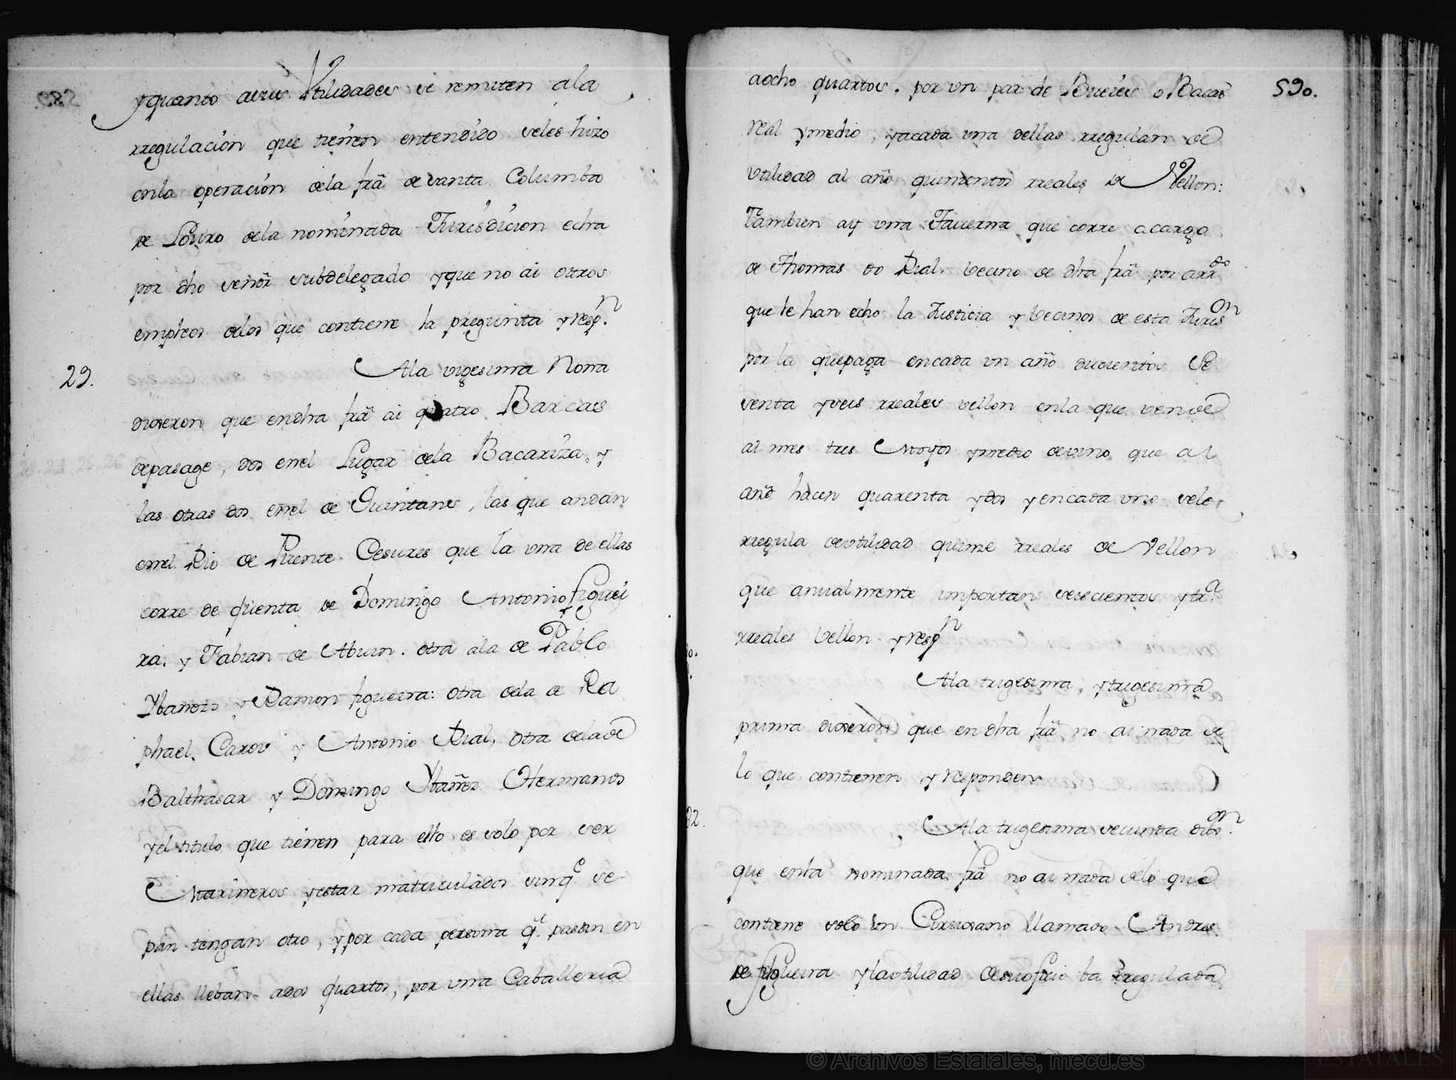 y quanto a eius Vtilidades se remiten ala
rregulación que tienen entendido seles hizo
enla operación dela frã de santa Columba
de Louro dela nominada Jurisdicion echa
por dho señor subdelegado y que no ai otros
empleos delos que contiene la pregunta y resp.n
29.
Ala vigesima Nona
dixeron que en dha frã ai quatro Barcas
de pasage, dos enel Lugar dela Bacariza, y
las otras dos enel de Quintans, las que andan
enel Rio de Puente Cesures que la vna de ellas
corre de quenta de Domingo Antonio figuei
ra, y Fabian de Abuin. otra ala de Pablo
Ybañez y Ramon figueira: otra dela de Ra
phael Carou y Antonio Dial, otra dela de
Balthasar y Domingo Ybañez Hermanos
y el titulo que tienen para ello es solo por ser
Marineros y estar matriculados sin q.e se-
pan tengan otro, y por cada persona q.e pasan en
ellas lleban ados quartos, por vna Caballeria
590.
aocho quartos. por vn par de Bueies o Bacas
real y medio, y acada vna dellas rregulan de
Vtilidad al año quinientos rreales de Vellon:
Tambien ay vna Tauerna que corre acargo
de Thomas do Dial. Vecino de dha frã por arr.do
que le han echo la Justicia y Vecinos de esta Juris.on
por la que paga encada vn año ducientos se
senta y seis rreales vellon enla que vende
al mes tres Moyos y medio de vino que al
año hacen quarenta y dos y encada vno sele
rregula de vtilidad quince rreales de Vellon
que anualmente importan seiscientos y tr.a
rreales Vellon y resp.n
Ala trigesima, y trigesima
prima dixeron que en dha frã no ai nada de
lo que contienen y responden
32.
Ala trigesima secunda dix.on
que enla Nominada frã no ai nada delo que
contiene solo vn Cirujano llamado Andres
de figueira y la vtilidad de su oficio ba rregulada
© Archivos Estatales, mecd.es